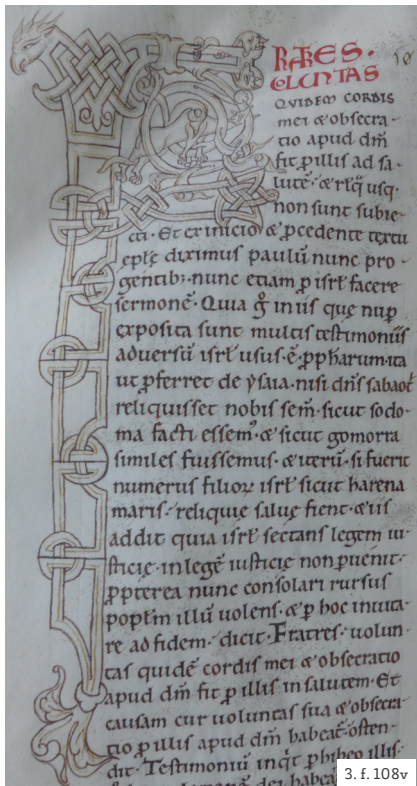 FRATRES · 10
VOLUNTAS
QVIDEM CORDIS
mei & obsecra-
tio apud dm̄
fit ꝓ illis ad sa-
lutē · & rłq̄ usq.
non sunt subie-
cti · Et ex inicio & p̄cedente textu
eplę diximus paulū nunc pro-
gentib; · nunc etiam ꝓ isrł facere
sermonē · Quia g̊ in iis que nup̄
exposita sunt multis testimoniis
adversū isrł usus · ē · ꝓpharum · ita
ut ꝓferret de ysaia · nisi dn̄s sabaoł
reliquisset nobis sem̄ · sicut sodo-
ma facti essem; · & sicut gomorra
similes fuissemus · & iterū · si fuerit
numerus filioꝝ isrł sicut harena
maris · reliquie salvę fient · & iis
addit quia isrł sectans legem iu-
sticię · in legē iusticię non ꝑuenit ·
ꝓpterea nunc consolari rursus
popłm illū uolens · & ꝑ hoc inuita-
re ad fidem · dicit · Fratres · uolun-
tas quidē cordis mei & obsecratio
apud dm̄ fit ꝓ illis in salutem · Et
causam cur uoluntas sua & obsecra-
tio ꝓ illis apud dm̄ habeat · osten-
dit · Testimoniū inq̇t ꝑhibeo illis ·
dei
3. f. 108v